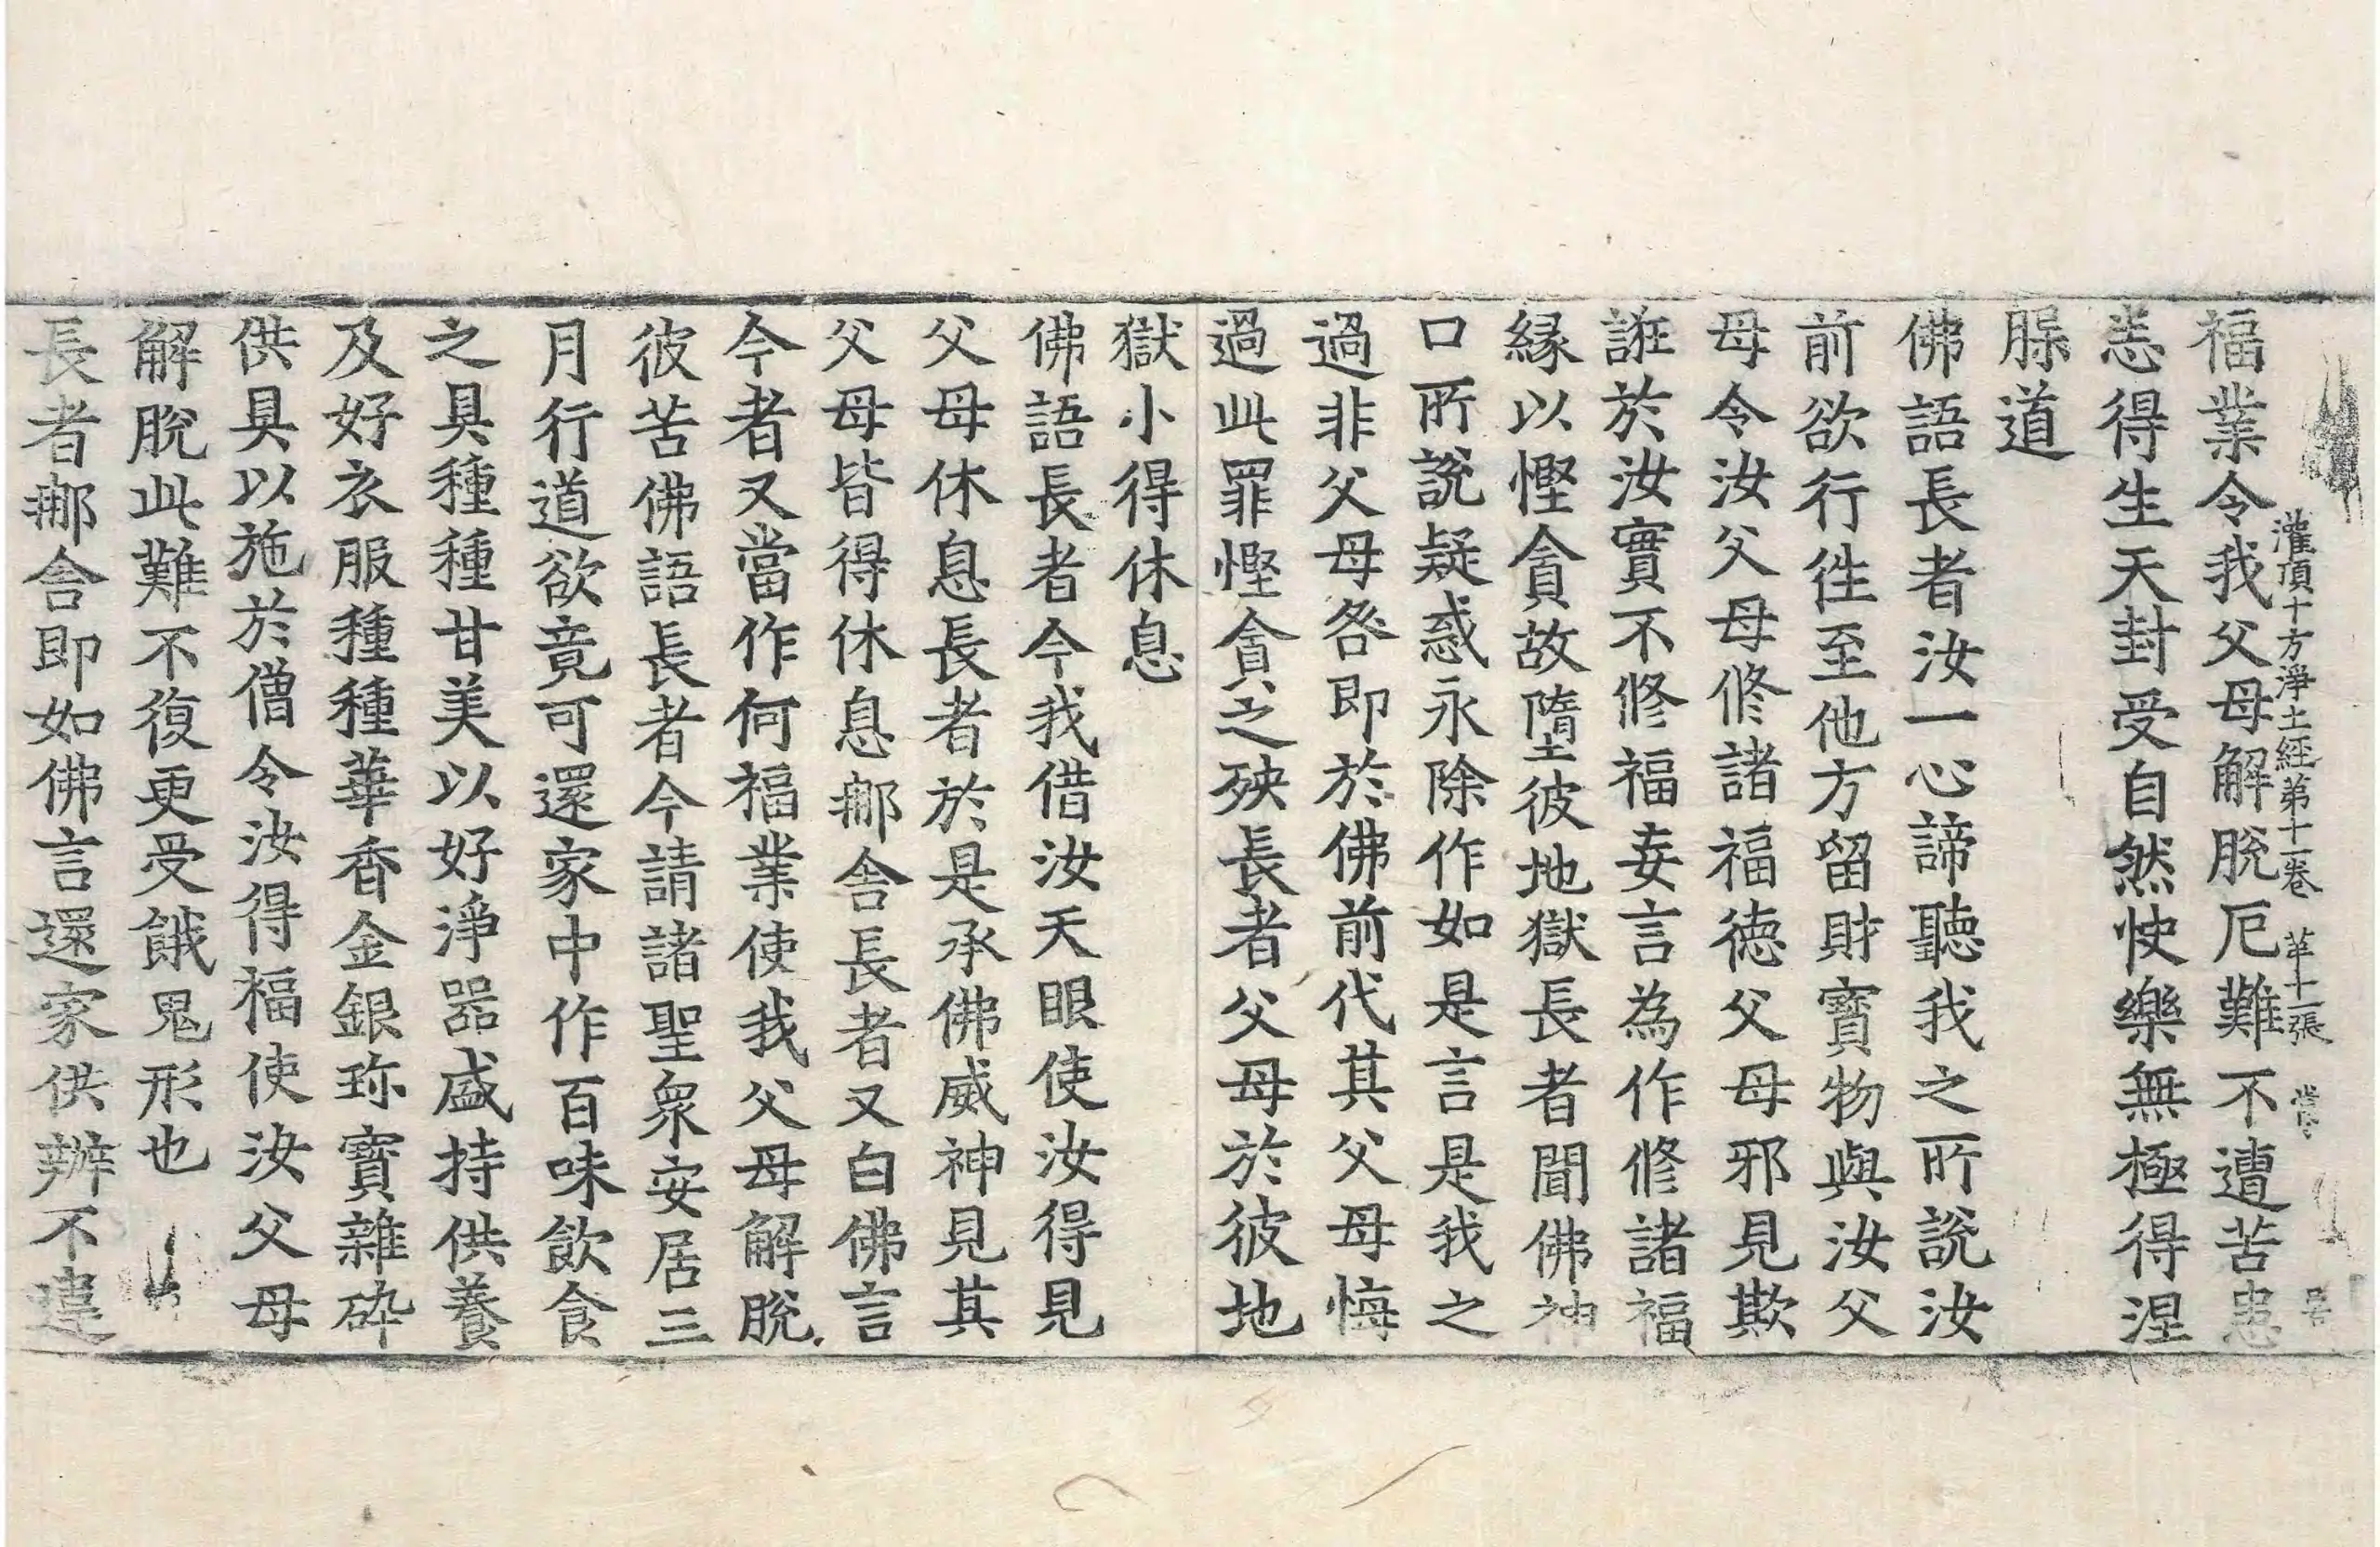 灌頂十方淨土經第十一卷 第十一張 當
福業令我父母解脫厄難不遭苦患
悉得生天封受自然快樂無極得涅
脲道
佛語長者汝一心諦聽我之所說汝
前欲行徃至他方留財寶物與汝父
母令汝父母修諸福德父母邪見欺
誑於汝實不修福妄言為作修諸福
緣以慳貪故墮彼地獄長者聞佛神
口所說疑惑永除作如是言是我之
過非父母咎即於佛前代其父母悔
過此罪慳貪之殃長者父母於彼地
獄小得休息
佛語長者今我借汝天眼使汝得見
父母休息長者於是承佛威神見其
父母皆得休息郍舍長者又白佛言
今者又當作何福業使我父母解脫
彼苦佛語長者今請諸聖衆安居三
月行道欲竟可還家中作百味飲食
之具種種甘美以好淨器盛持供養
及好衣服種種華香金銀珎寶雜碎
供具以施於僧令汝得福使汝父母
解脫此難不復更受餓鬼形也
長者郍舍即如佛言還家供辦不違